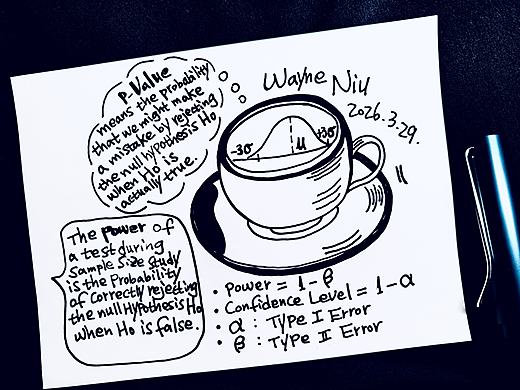 P-Value
means the Probability
that we might make
a mistake by rejecting
the null hypothesis Ho
when Ho is
actually true.
Wayne Niu
2026.3.29.
-3σ
μ
+3σ
The Power of
a test during
Sample Size Study
is the Probability
of Correctly rejecting
the null Hypothesis Ho
when Ho is false.
• Power = 1-β
• Confidence Level = 1-α
• α : Type I Error
• β : Type II Error